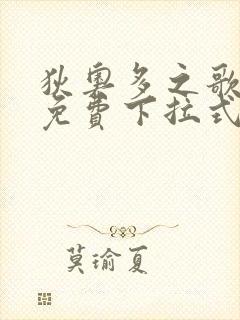 狄奧多之歌
免費下拉式
莫瑜夏